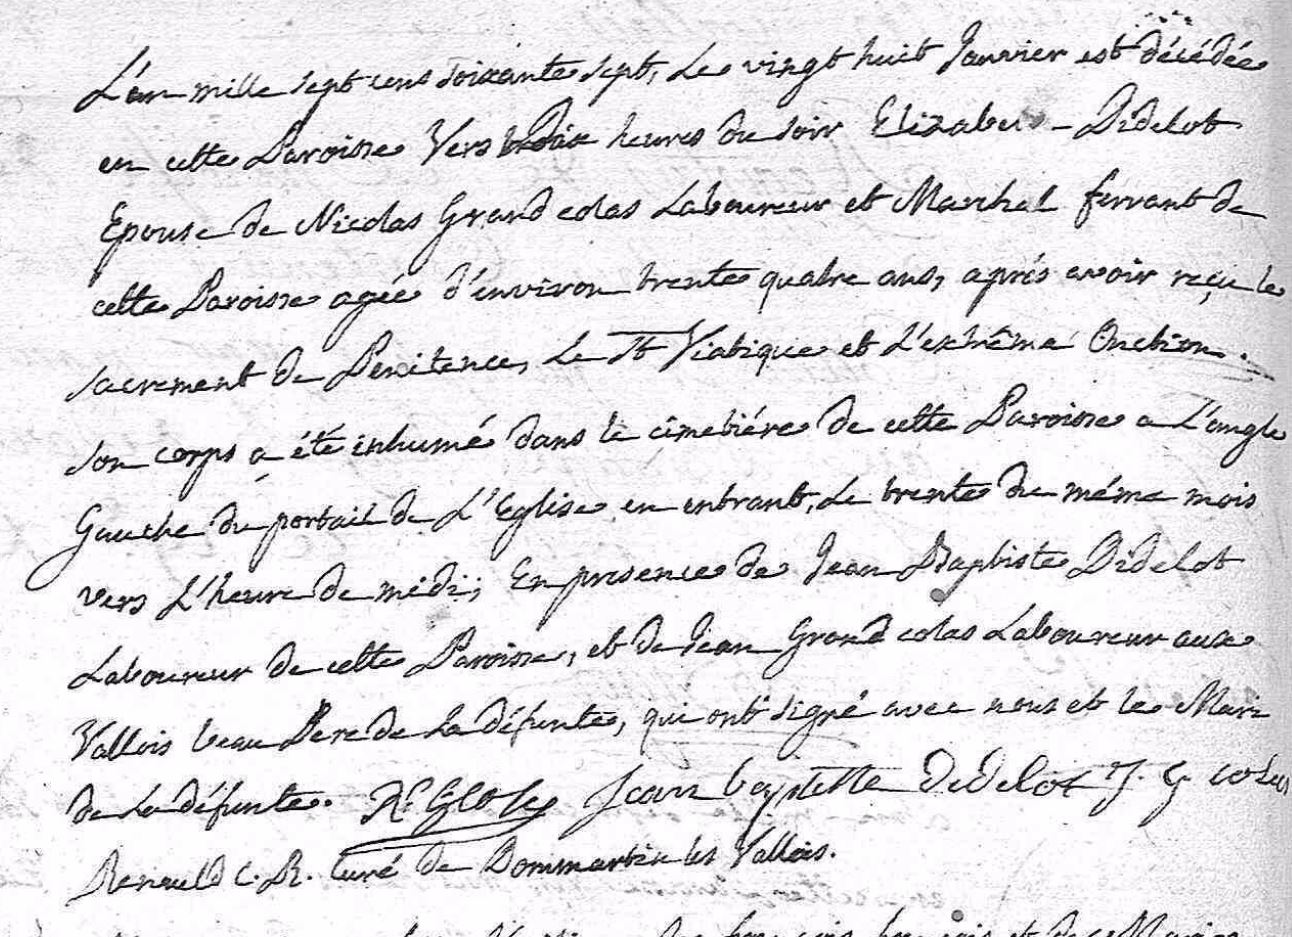 L'an mille sept cens soixante sept, Le vingt huit Janvier est décédée
en cette Paroisse Vers dix heures du soir Elizabet - Didelot
Epouse de Nicolas Grand colas Laboureur et Marchal ferrant de
cette Paroisse agée d'environ trente quatre ans, aprés avoir reçu le
sacrement de Penitence, Le St Viatique et L'extrême Onction.
son corps a été inhumé dans le cimetiére de cette Paroisse a L'angle
Gauche du portail de L'Eglise en entrant, Le trente du méme mois
vers L'heure de midi; En presence de Jean Baptiste Didelot
Laboureur de cette Paroisse, et de Jean Grand colas Laboureur aux
Vallois beau Pere de La défunte, qui ont signé avec nous et le Mari
de La défunte. Jean baptiste Dedelot J. G colas
Renauld C. R. Curé de Dommartin les Vallois.